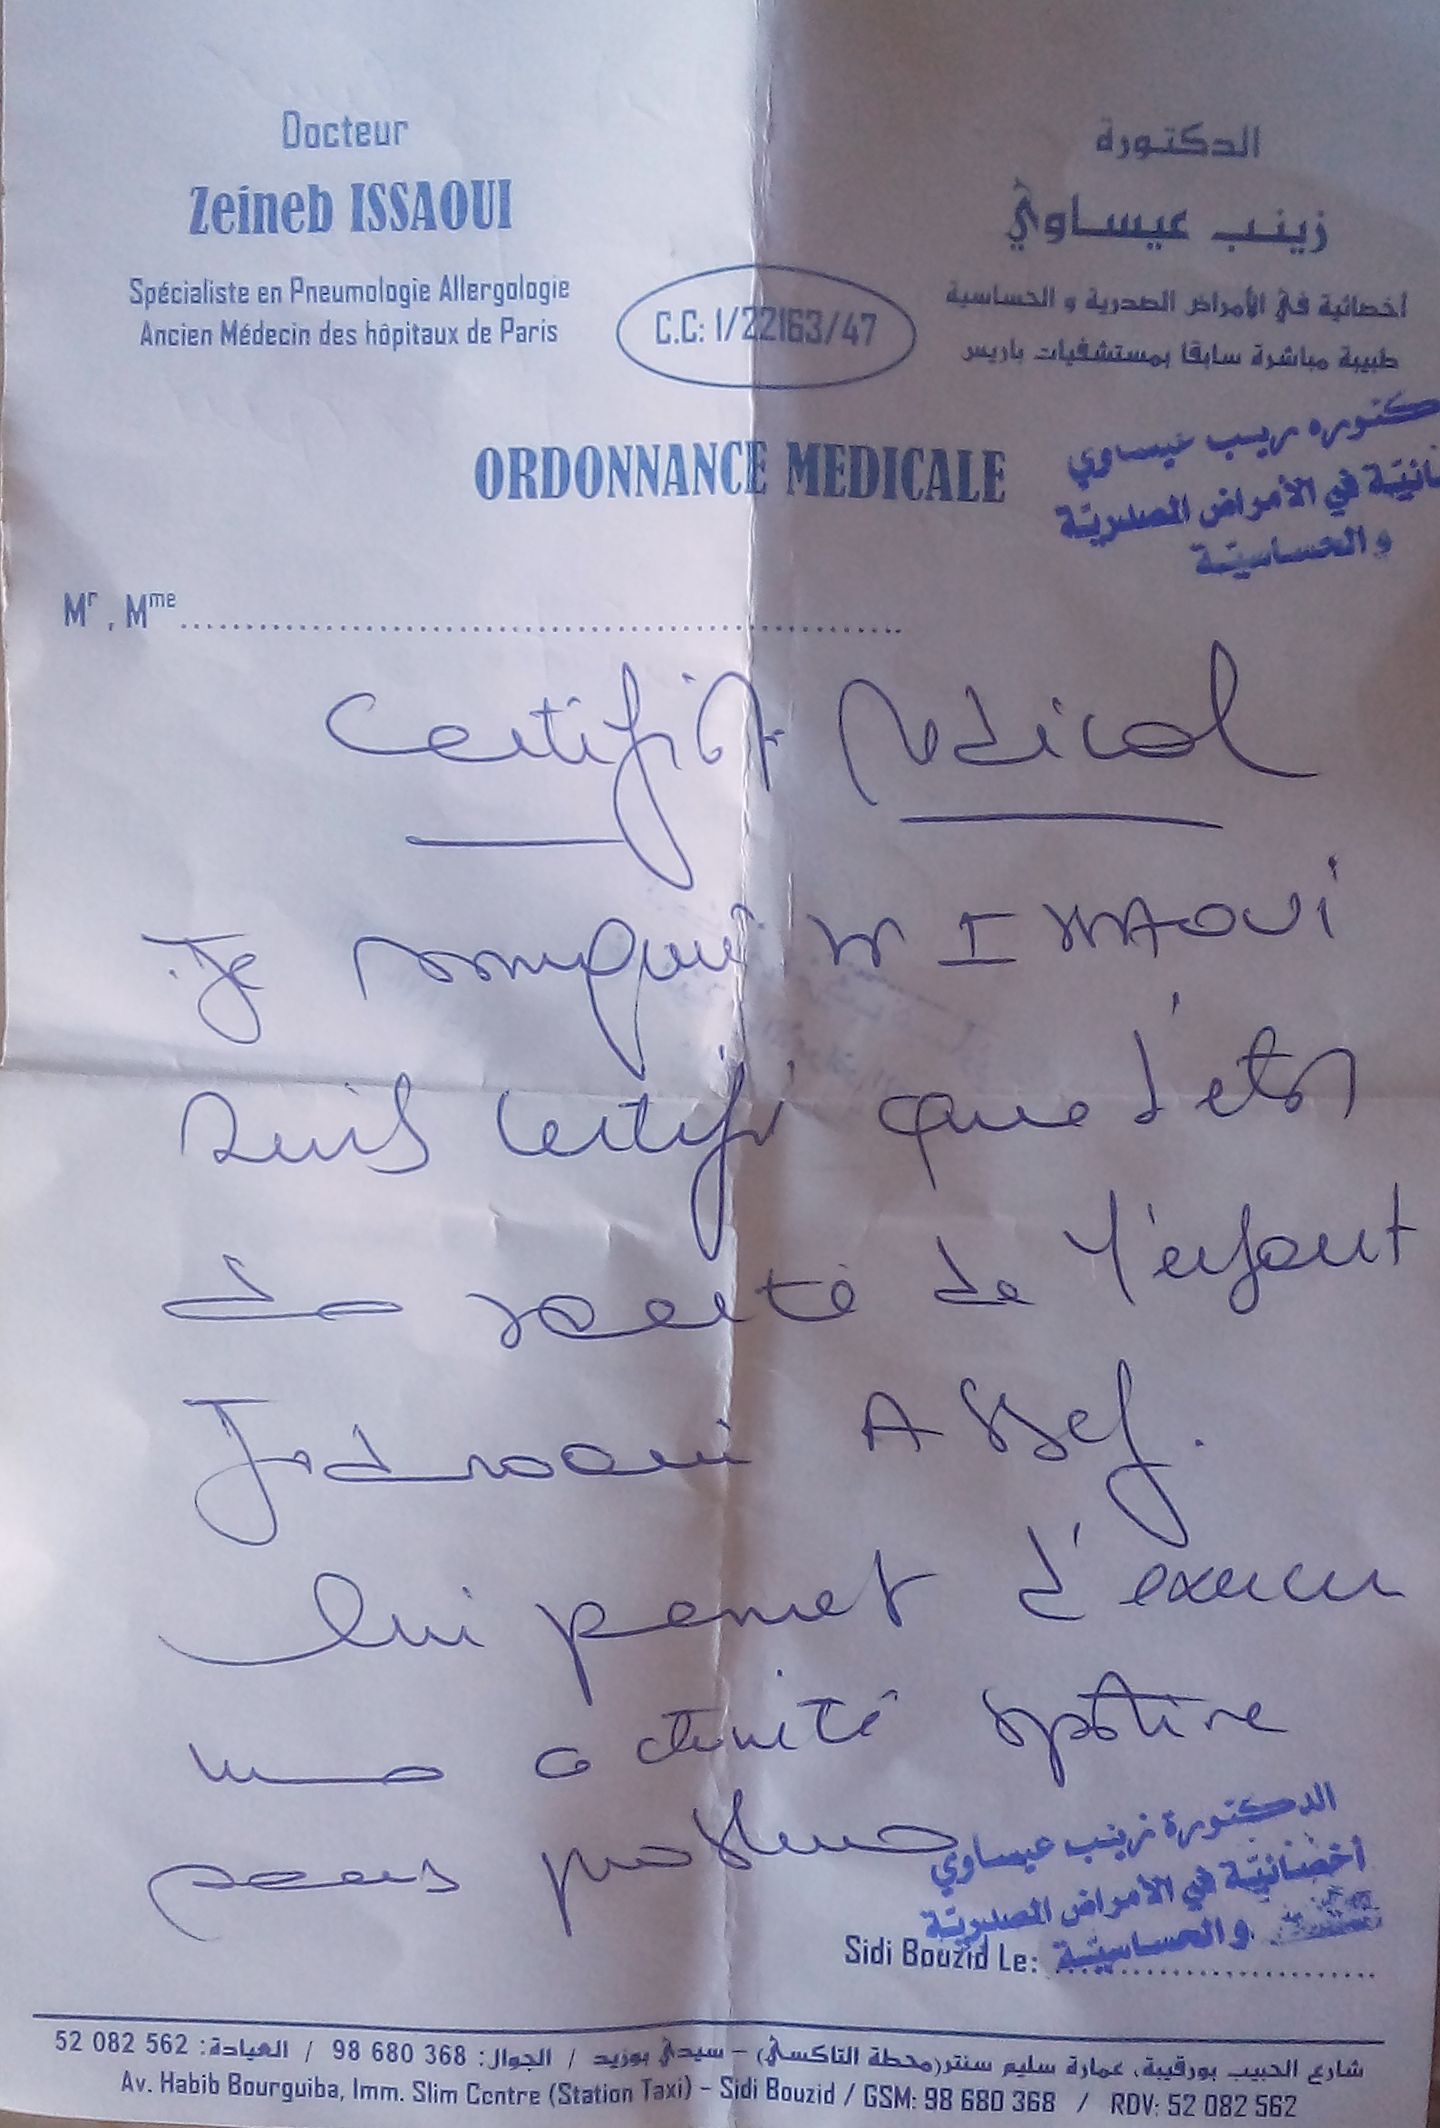 Docteur
Zeineb ISSAOUI
Spécialiste en Pneumologie Allergologie
Ancien Médecin des hôpitaux de Paris
C.C: 1/22163/47
الدكتورة
زينب عيساوي
أخصائية في الأمراض الصدرية و الحساسية
طبيبة مباشرة سابقا بمستشفيات باريس
ORDONNANCE MEDICALE
كتوره زينب عيساوي
ائيّة في الأمراض الصدريّة
و الحساسيّة
Mr , Mme
Certificat Medical
Je soussigné Dr ISSAOUI
certifie que l'état
de santé de l'enfant
Assef.
lui permet d'exercer
une activité sportive
sans problème
الدكتورة زينب عيساوي
أخصائيّة في الأمراض الصدريّة
و الحساسيّة
Sidi Bouzid Le:
شارع الحبيب بورقيبة، عمارة سليم سنتر(محطة التاكسي) – سيدي بوزيد / الجوال: 98 680 368 / العيادة: 52 082 562
Av. Habib Bourguiba, Imm. Slim Centre (Station Taxi) – Sidi Bouzid / GSM: 98 680 368 / RDV: 52 082 562